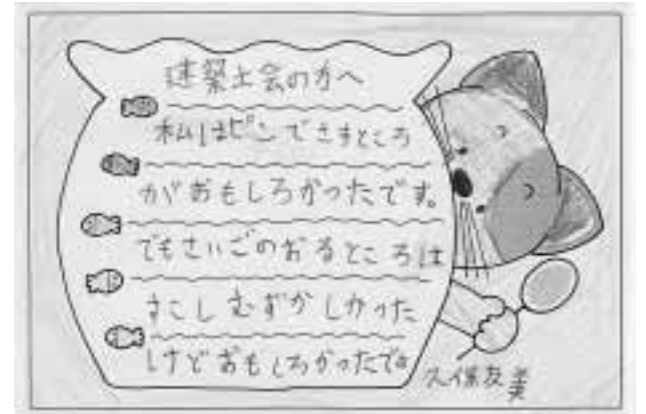 建築士会の方へ
私はピンでさすところ
がおもしろかったです。
でもさいごのおるところは
すこしむずかしかった
けどおもしろかったです
久保友美